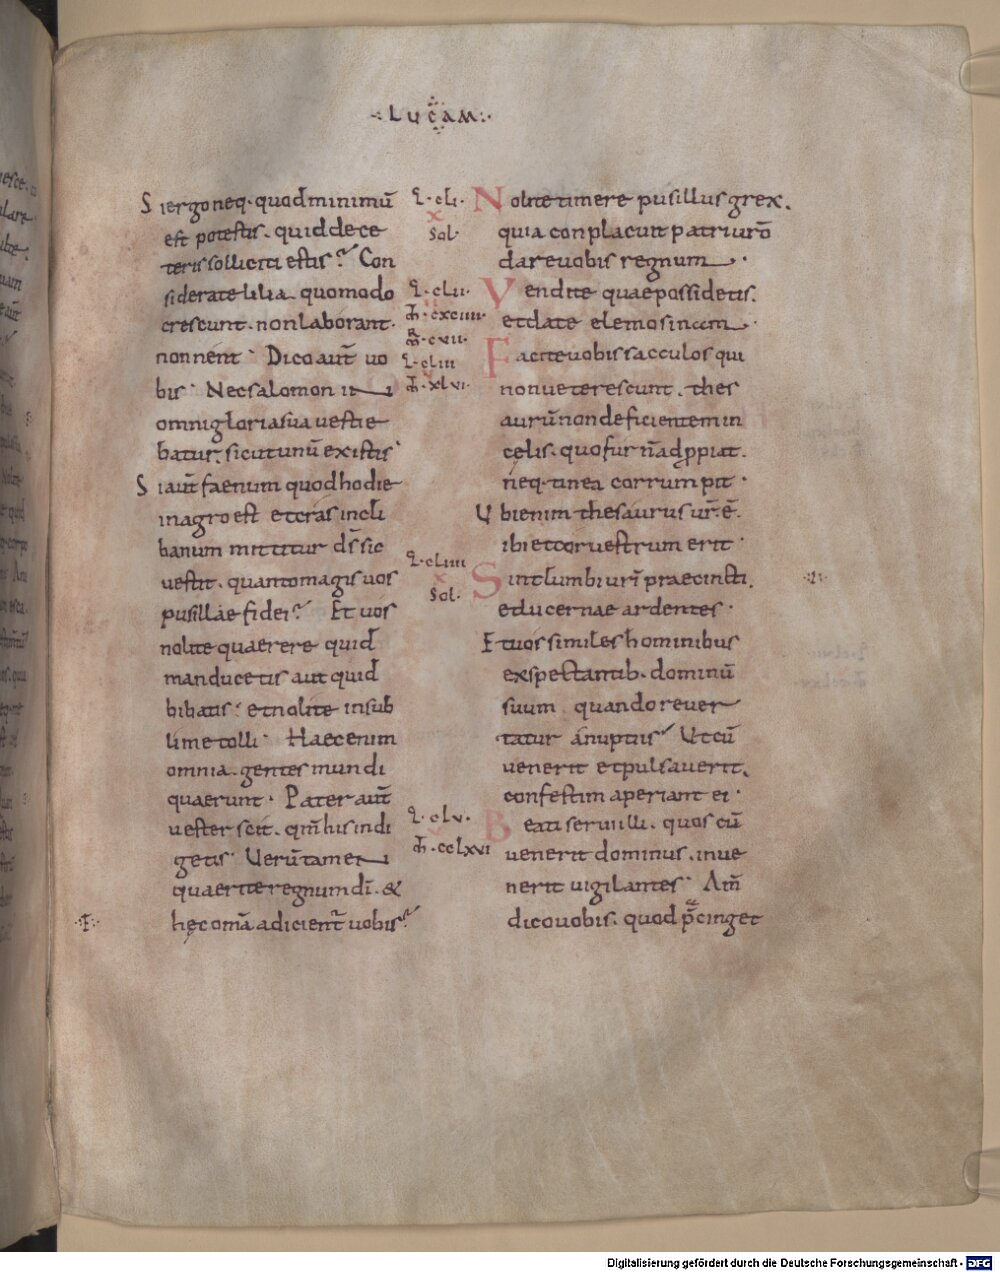 LUCAM
Si ergo neq· quod minimū
est potestis· quid de ce
teris solliciti estis? Con
siderate lilia quomodo
crescunt· non laborant·
non nent· Dico aut̄ uo
bis· Nec salomon in
omni gloria sua uestie
batur· sicut unū ex istis·
Si aut̄ faenum quod hodie
in agro est et cras in cli
banum mittitur d̄s sic
uestit· quanto magis uos
pusillae fidei? Et uos
nolite quaerere quid
manducetis aut quid
bibatis· et nolite in sub
lime tolli· Haec enim
omnia gentes mundi
quaerunt· Pater aut̄
uester scit· qm̄ his indi
getis· Uerūtamen
quaerite regnum dī· &
hęc omā adicient̄ uobis
L·cli·
x
Sol·
L·clii·
M̄·cxciiii·
R̄·cvii·
L·cliii
M̄·xlvi·
L·cliiii
x
Sol·
L·clv·
M̄·cclxvi
Nolite timere pusillus grex·
quia conplacuit patri ur̄o
dare uobis regnum·
Vendite quae possidetis·
et date elemosinam·
Facite uobis sacculos qui
non ueterescunt· thes
aurū non deficientem in
celis· quo fur n̄ adpropiat·
neq· tinea corrumpit·
Ubi enim thesaurus ur̄ ē·
ibi et cor uestrum erit·
Sint lumbi urī praecincti·
et lucernae ardentes·
Et uos similes hominibus
exspectantib· dominū
suum quando reuer
tatur a nuptiis Ut cū
uenerit et pulsauerit·
confestim aperiant ei·
Beati serui illi· quos cū
uenerit dominus· inue
nerit uigilantes· Am̄
dico uobis· quod p̄cinget
Digitalisierung gefördert durch die Deutsche Forschungsgemeinschaft - DFG